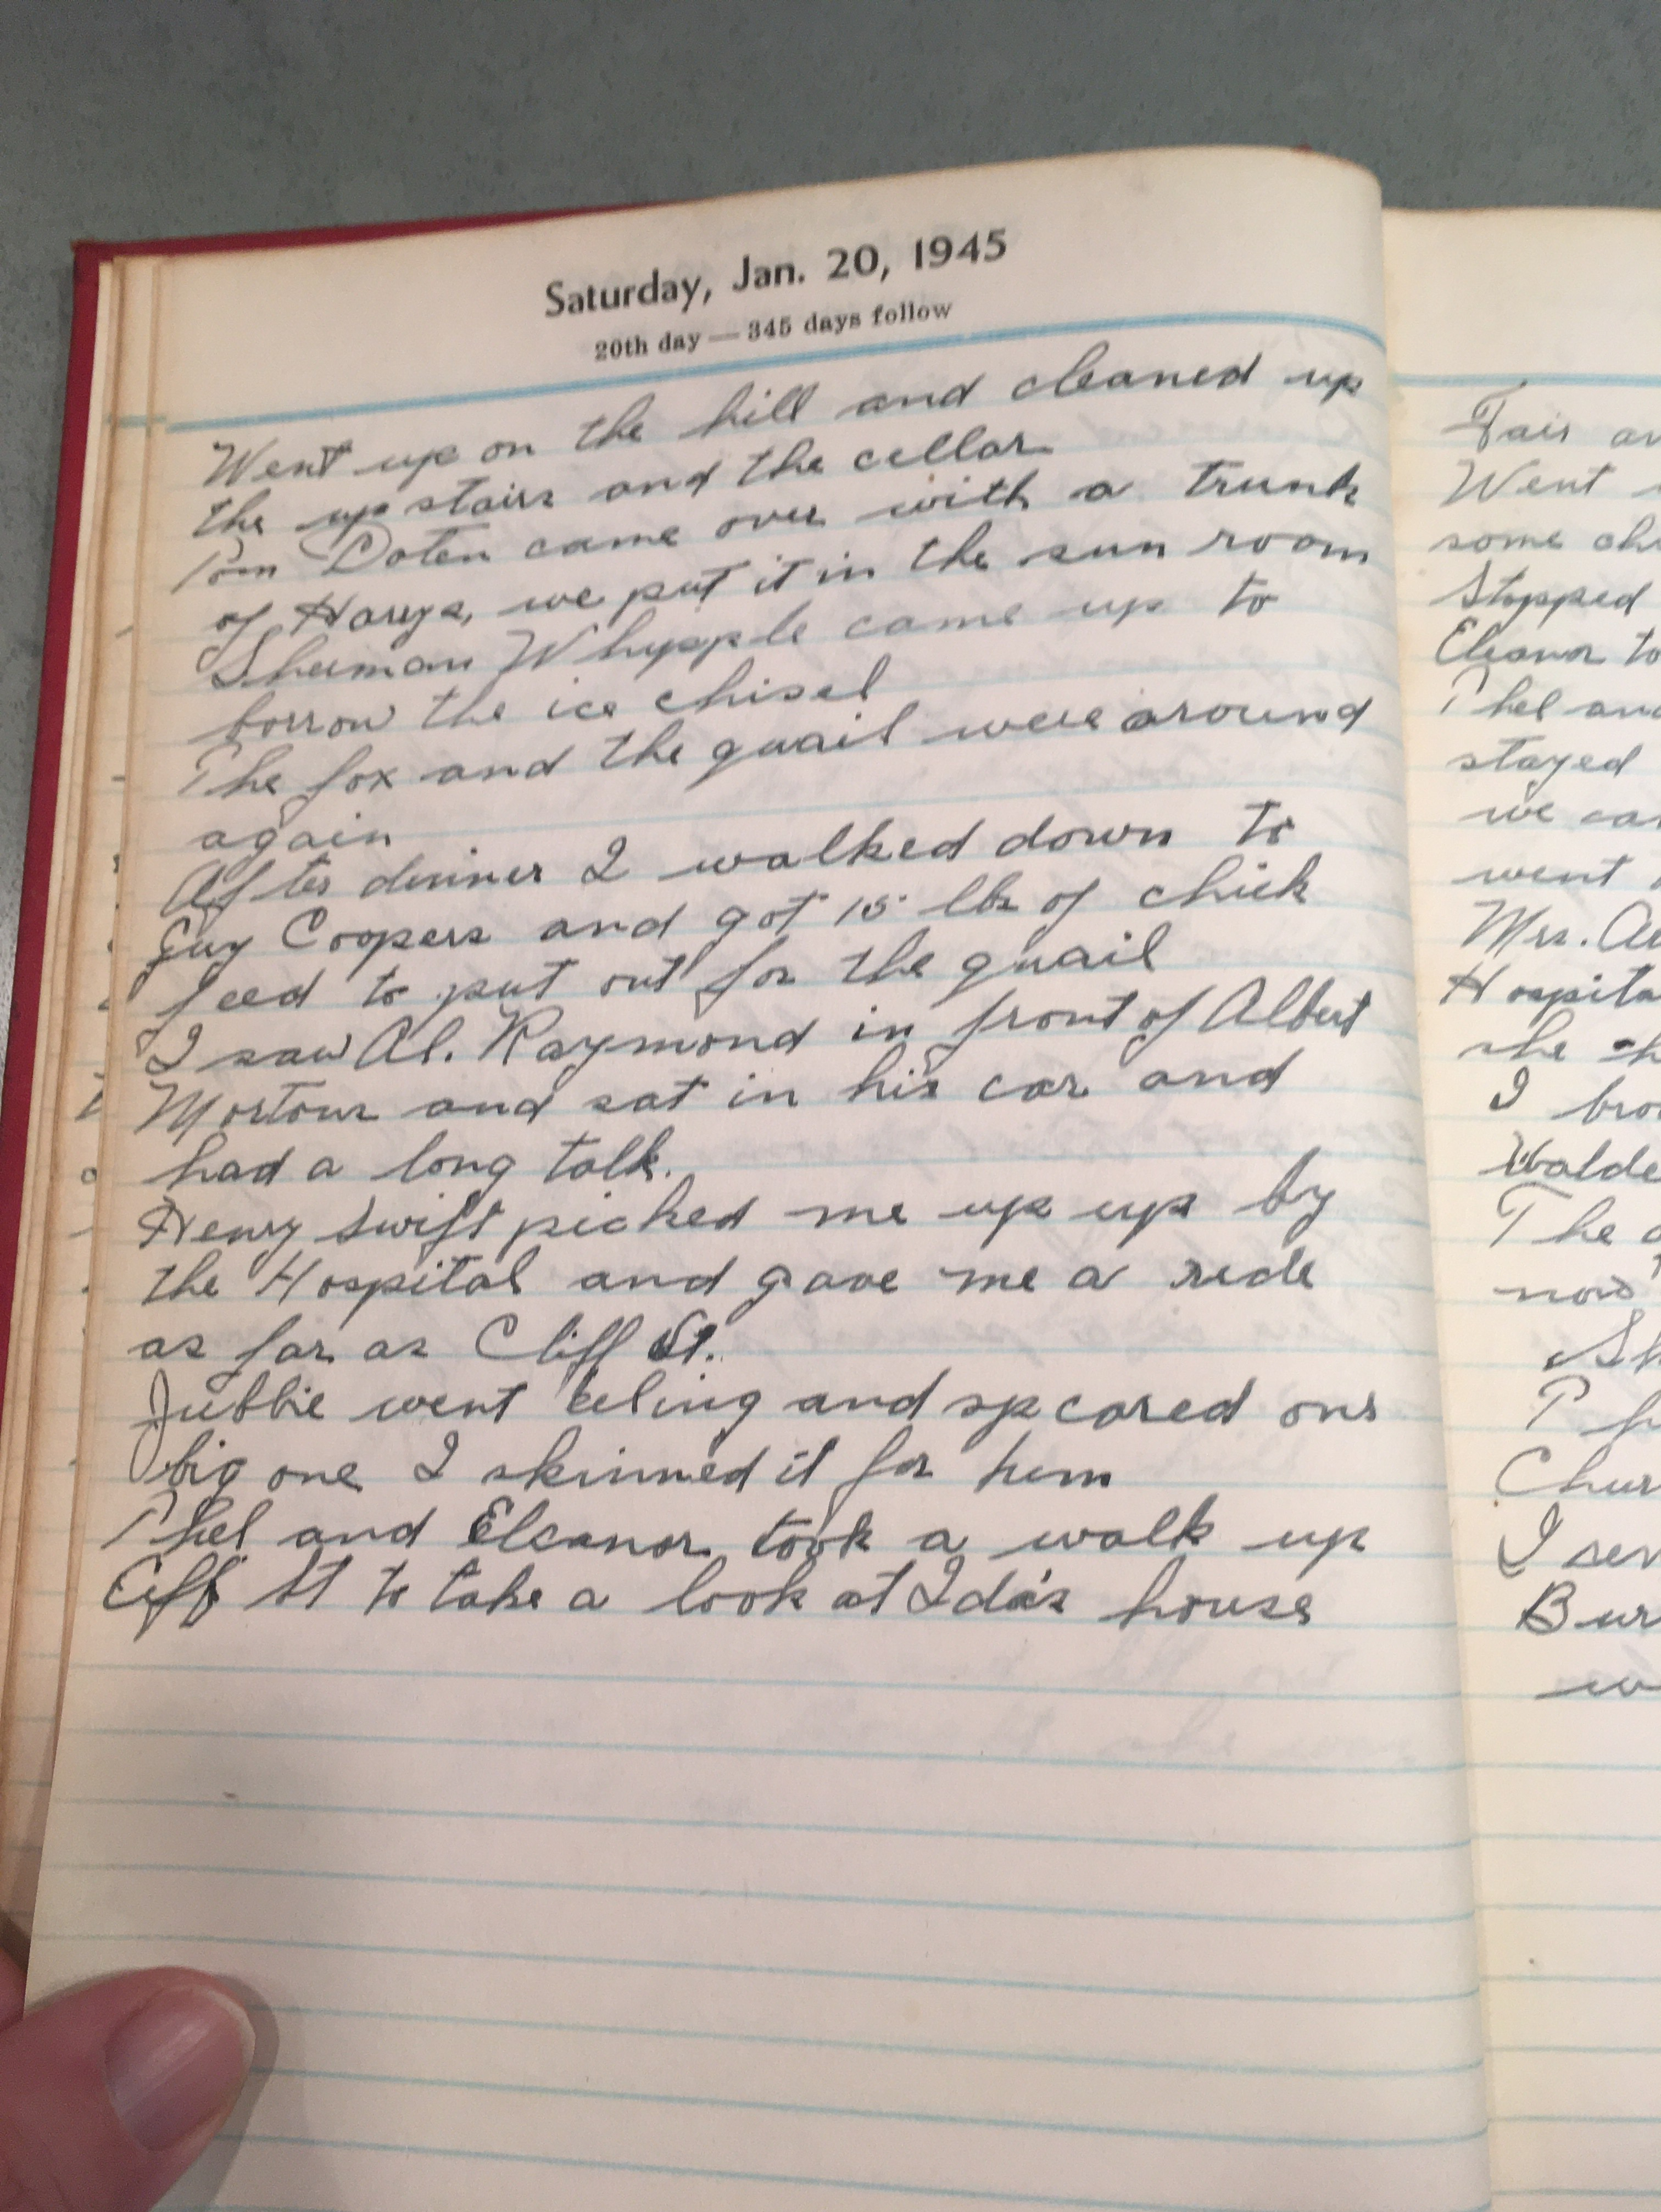 Saturday, Jan. 20, 1945
20th day — 345 days follow
Went up on the hill and cleaned up
the up stairs and the cellar
Tom Doten came over with a trunk
of Harys, we put it in the sun room
Sherman Whypple came up to
borrow the ice chisel
The fox and the quail were around
again
After dinner I walked down to
Guy Coopers and got 15 lbs of chick
feed to put out for the quail
I saw Al. Raymond in front of Albert
Mortons and sat in his car and
had a long talk.
Henry Swift picked me up up by
the Hospital and gave me a ride
as far as Cliff St.
Jubbie went eeling and speared one
big one I skinned it for him
Phel and Eleanor took a walk up
Cliff St to take a look at Ida's house
Fair
Went
some
Stopped
Eleanor to
Phel and
stayed
we
went
Mrs.
she
I
The
now
I